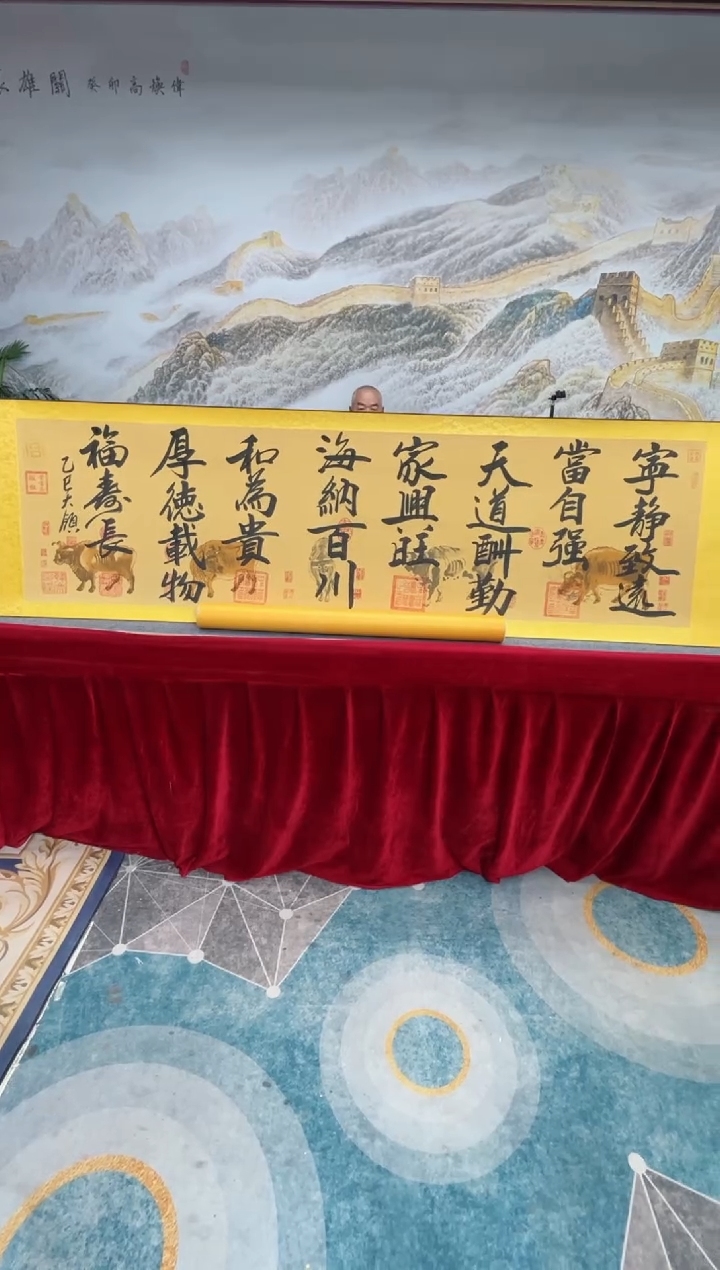 雄關 癸卯高煥偉
寧靜致遠
當自强
天道酬勤
家興旺
海納百川
和為貴
厚徳載物
福壽長
乙巳大